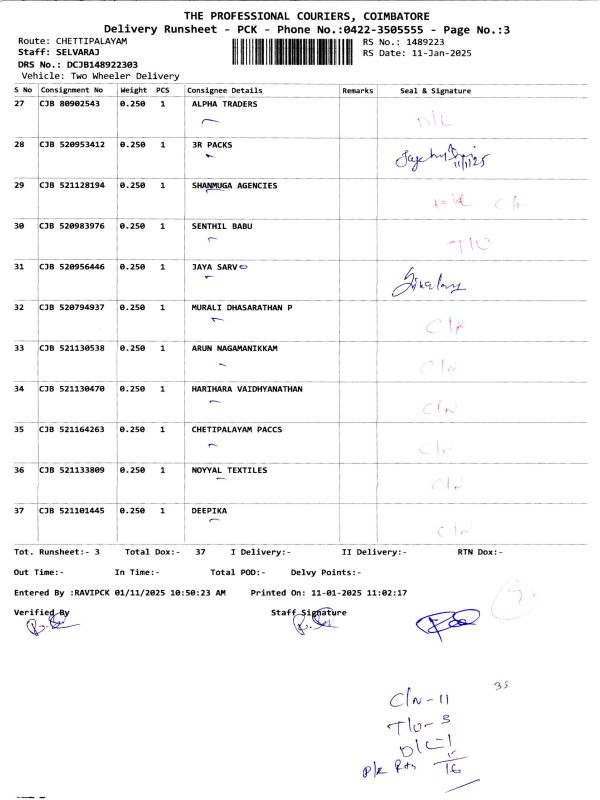 THE PROFESSIONAL COURIERS, COIMBATORE
Delivery Runsheet - PCK - Phone No.:0422-3505555 - Page No.:3
Route: CHETTIPALAYAM RS No.: 1489223
Staff: SELVARAJ RS Date: 11-Jan-2025
DRS No.: DCJB148922303
Vehicle: Two Wheeler Delivery
S No Consignment No Weight PCS Consignee Details Remarks Seal & Signature
27 CJB 80902543 0.250 1 ALPHA TRADERS D/L
28 CJB 520953412 0.250 1 3R PACKS 11/1/25
29 CJB 521128194 0.250 1 SHANMUGA AGENCIES C/N
30 CJB 520983976 0.250 1 SENTHIL BABU T/U
31 CJB 520956446 0.250 1 JAYA SARVO
32 CJB 520794937 0.250 1 MURALI DHASARATHAN P C/N
33 CJB 521130538 0.250 1 ARUN NAGAMANIKKAM C/N
34 CJB 521130470 0.250 1 HARIHARA VAIDHYANATHAN C/N
35 CJB 521164263 0.250 1 CHETIPALAYAM PACCS C/N
36 CJB 521133809 0.250 1 NOYYAL TEXTILES C/N
37 CJB 521101445 0.250 1 DEEPIKA C/N
Tot. Runsheet:- 3 Total Dox:- 37 I Delivery:- II Delivery:- RTN Dox:-
Out Time:- In Time:- Total POD:- Delvy Points:-
Entered By :RAVIPCK 01/11/2025 10:50:23 AM Printed On: 11-01-2025 11:02:17
Verified By Staff Signature
35
C/N-11
T/U-3
D/L-1